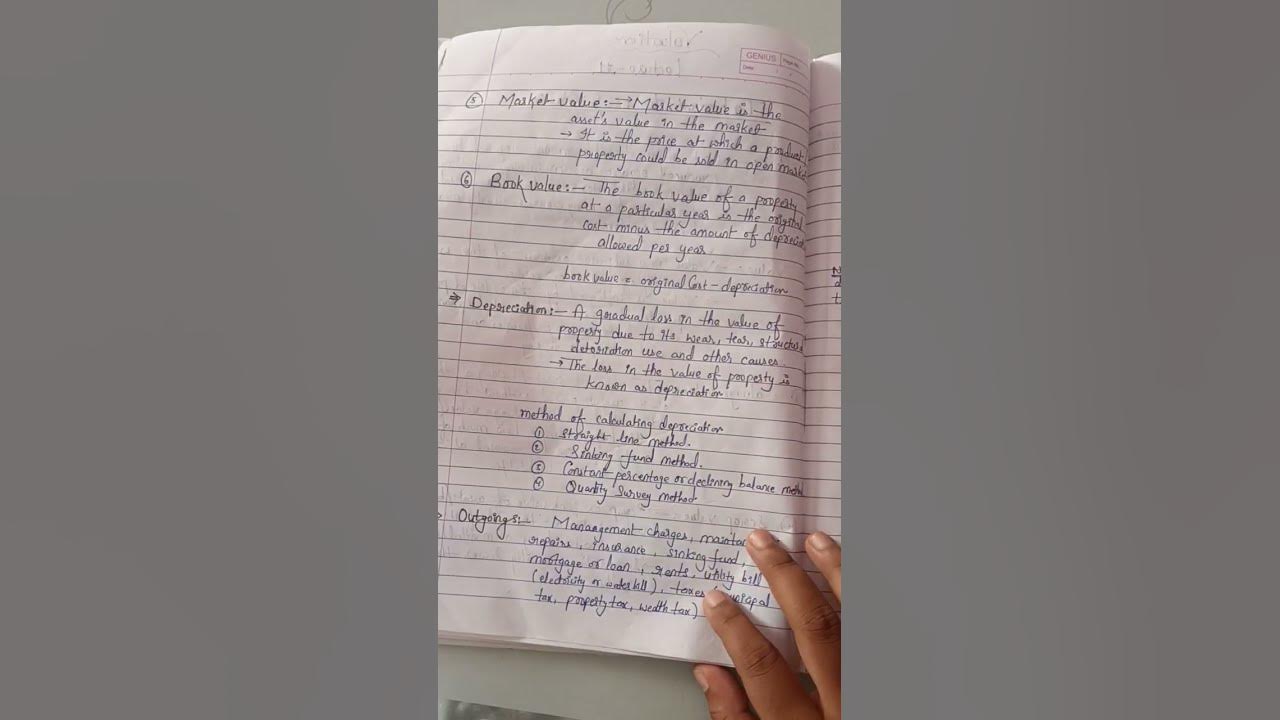 Valuation
Lecture-01
GENIUS
Page No.
Date
⑤ Market value:- => Market value is the
asset's value in the market
→ It is the price at which a product,
property could be sold in open market
⑥ Book value:- The book value of a property
at a particular year is the original
cost minus the amount of depreciati
allowed per year.
book value = original Cost - depreciation
⇒ Depreciation:- A gradual loss in the value of
property due to its wear, tear, structural
detorization use and other causes.
→ The loss in the value of property is
known as depreciation
method of calculating depreciation
① straight line method.
② Sinking fund method.
③ Constant percentage or declining balance meth
④ Quantity Survey method
Outgoings:- Manangement charges,
repairs, insurance, sinking fund,
mortgage or loan, rents, utility bill
(electricity or water bill), taxes
tax, property tax, wealth tax)